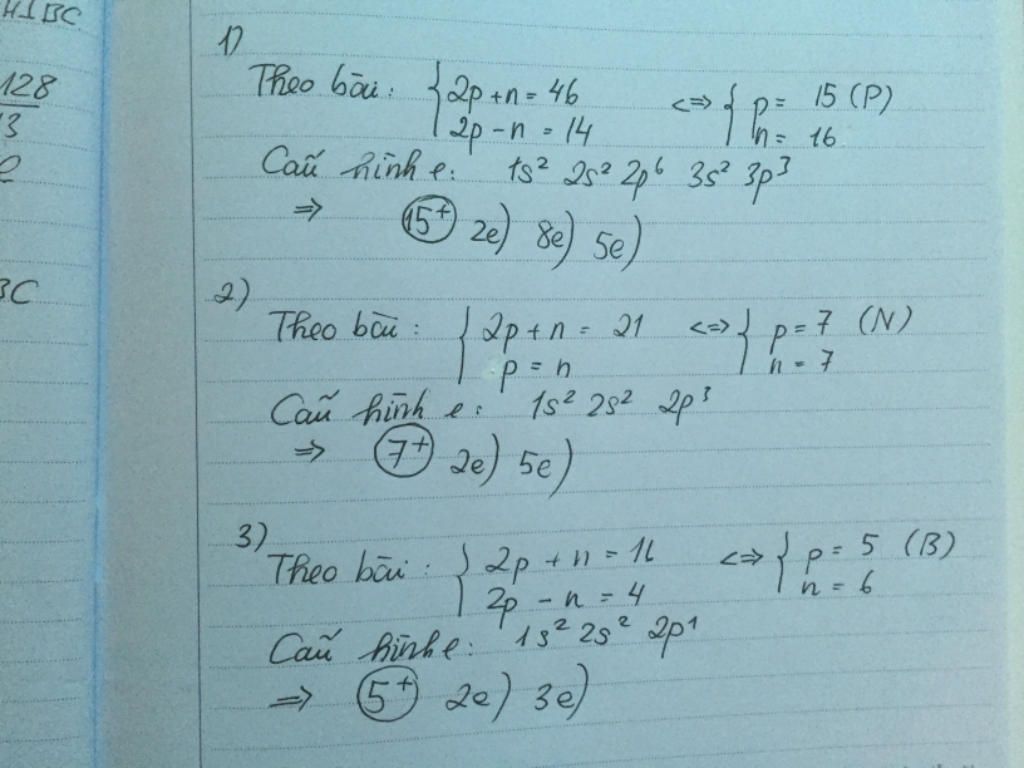 H⊥BC
128
13
BC
1)
Theo bài: { 2p+n = 46 <=> { p = 15 (P)
2p - n = 14 n = 16
Cấu hình e: 1s² 2s² 2p⁶ 3s² 3p³
=> 15+ 2e) 8e) 5e)
2)
Theo bài: { 2p + n = 21 <=> { p = 7 (N)
p = n n = 7
Cấu hình e: 1s² 2s² 2p³
=> 7+ 2e) 5e)
3)
Theo bài: { 2p + n = 16 <=> { p = 5 (B)
2p - n = 4 n = 6
Cấu hình e: 1s² 2s² 2p¹
=> 5+ 2e) 3e)